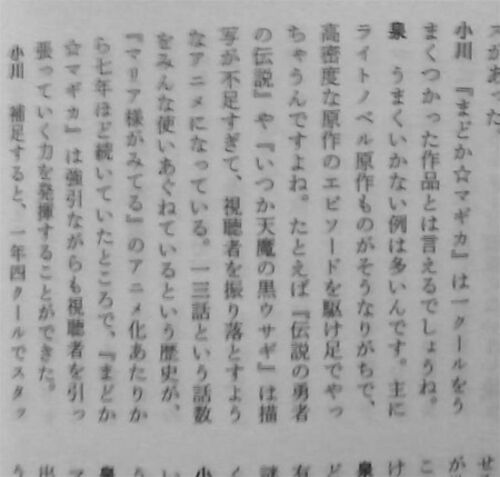 スがあった
小川　『まどか☆マギカ』は一クールをう
まくつかった作品とは言えるでしょうね。
泉　うまくいかない例は多いんです。主に
ライトノベル原作ものがそうなりがちで、
高密度な原作のエピソードを駆け足でやっ
ちゃうんですよね。たとえば『伝説の勇者
の伝説』や『いつか天魔の黒ウサギ』は描
写が不足すぎて、視聴者を振り落とすよう
なアニメになっている。一三話という話数
をみんな使いあぐねているという歴史が、
『マリア様がみてる』のアニメ化あたりか
ら七年ほど続いていたところで、『まどか
☆マギカ』は強引ながらも視聴者を引っ
張っていく力を発揮することができた。
小川　補足すると、一年四クールでスタッ
せ
が
こ
け
泉
ど
有
謎
く
小
い
う
泉
マ
出
う